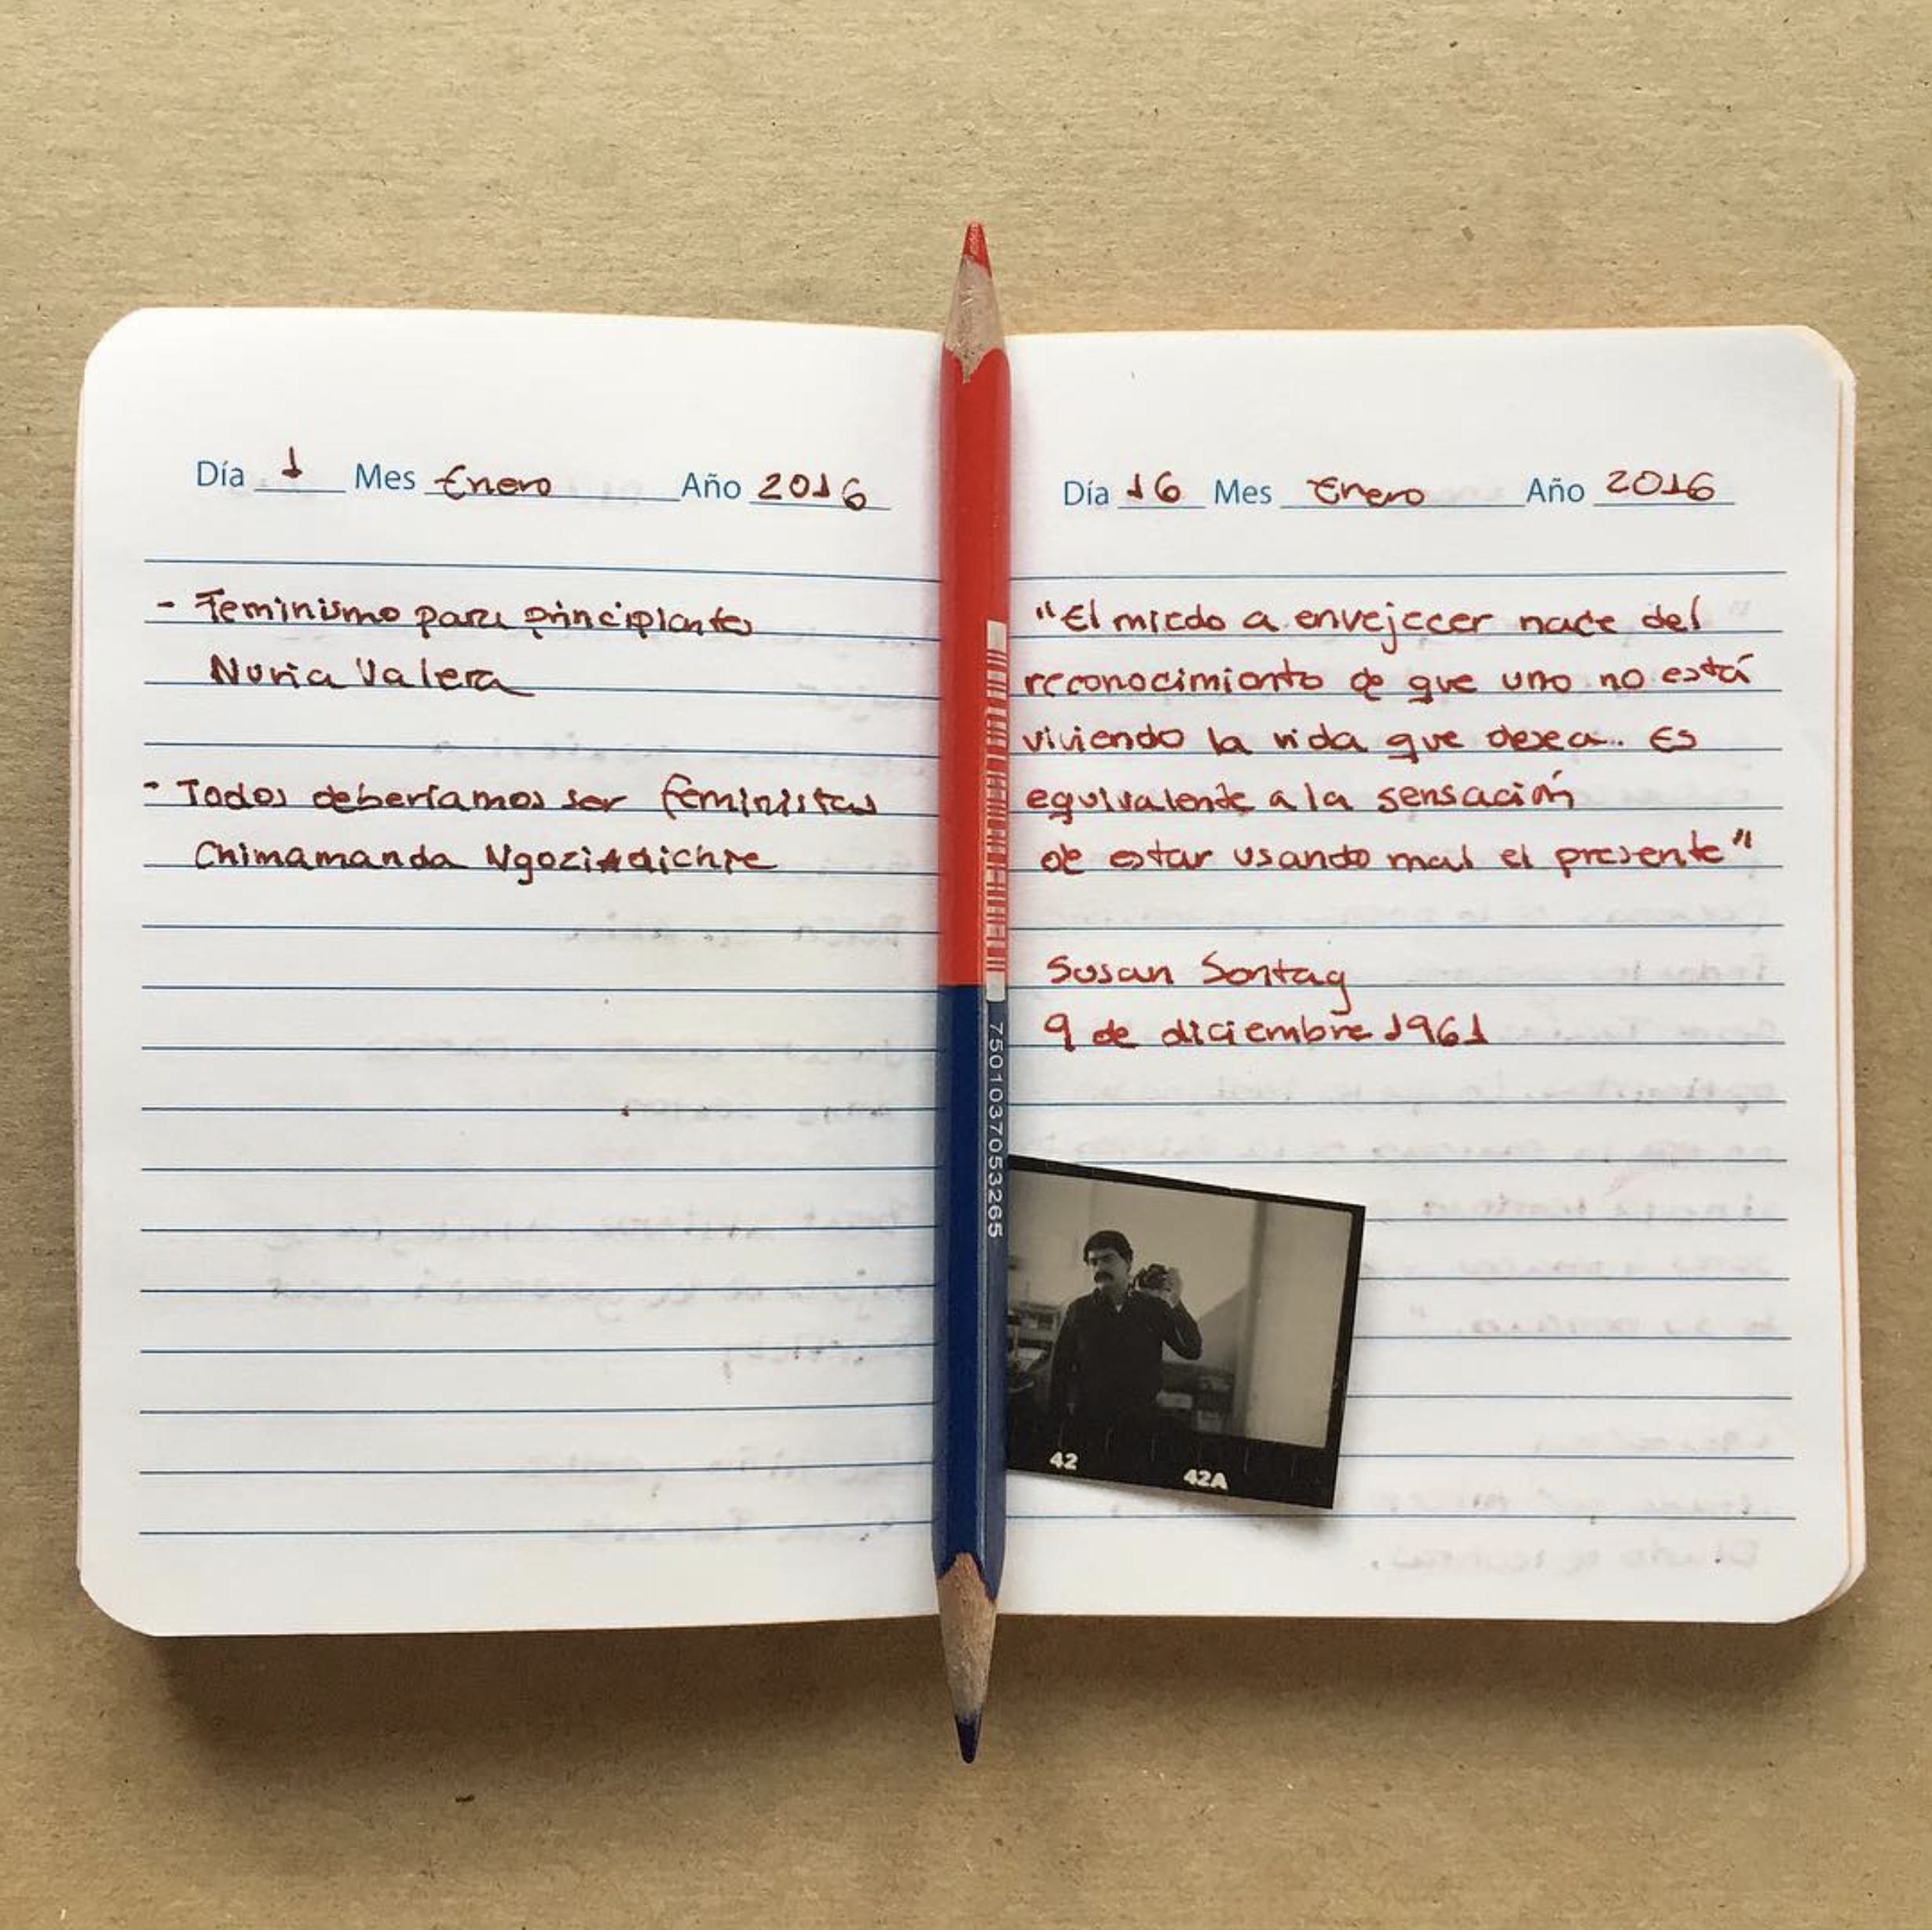 Día 1 Mes Enero Año 2016
- Feminismo para principiantes
Nuria Valera
- Todos deberíamos ser feministas
Chimamanda Ngozi Adichie
Día 16 Mes Enero Año 2016
"El miedo a envejecer nace del
reconocimiento de que uno no está
viviendo la vida que desea. Es
equivalente a la sensación
de estar usando mal el presente"
Susan Sontag
9 de diciembre 1961
7501037053265
42
42A